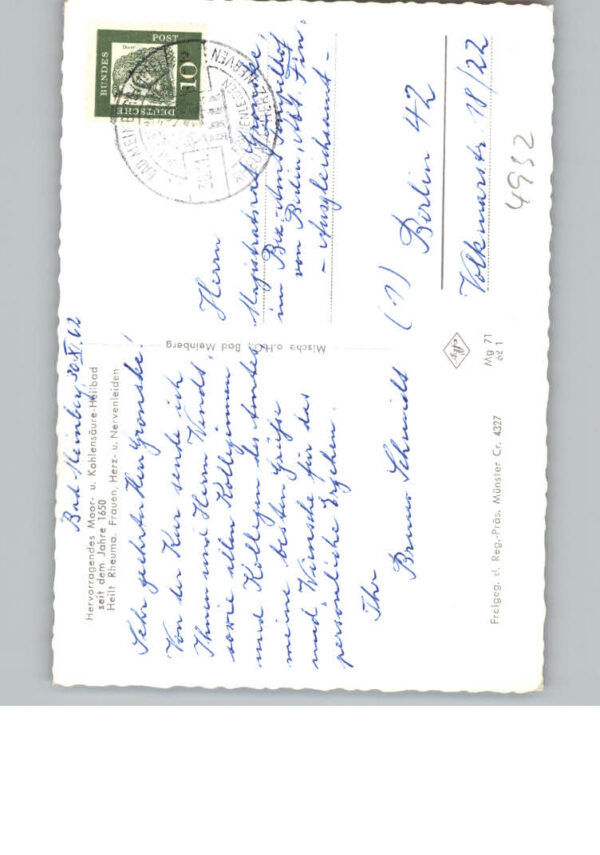 Hervorragendes Moor- u. Kohlensäure-Heilbad
seit dem Jahre 1650
Heilt Rheuma, Frauen, Herz- u. Nervenleiden
Bad-Meinberg, 30.XI.62
Sehr geehrter Herr Gronske!
Von der Kur sende ich
Ihnen und Herrn Wendt,
sowie allen Kolleginnen
und Kollegen des Amtes
meine besten Grüße
und Wünsche für das
persönliche Ergehen.
Ihr
Bruno Schmidt
Mische o.H.G., Bad Meinberg
DEUTSCHE
BUNDES
POST
10
BAD MEINBERG
Herrn
Magistratsrat Gronske,
im Bez.-Amt Tempelhof
von Berlin, Abt. Fin.
- Ausgleichsamt -
(1) Berlin 42
Volkmarstr. 18/22
4932
Mg 71
62 1
Freigeg. d. Reg.-Präs. Münster Cr. 4327